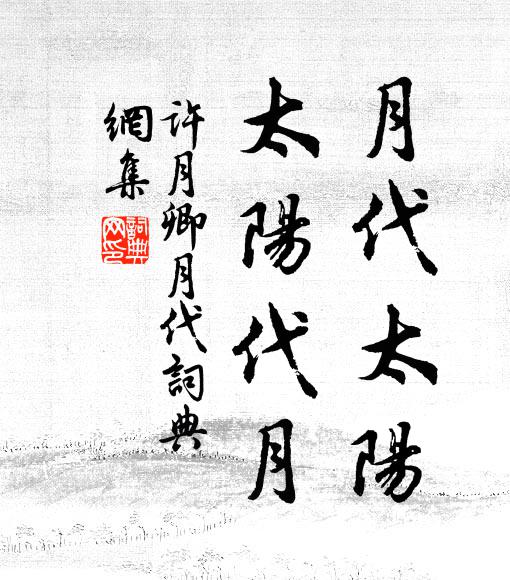 月代太陽
太陽代月
許月卿月代詞典
網集
詞典網印